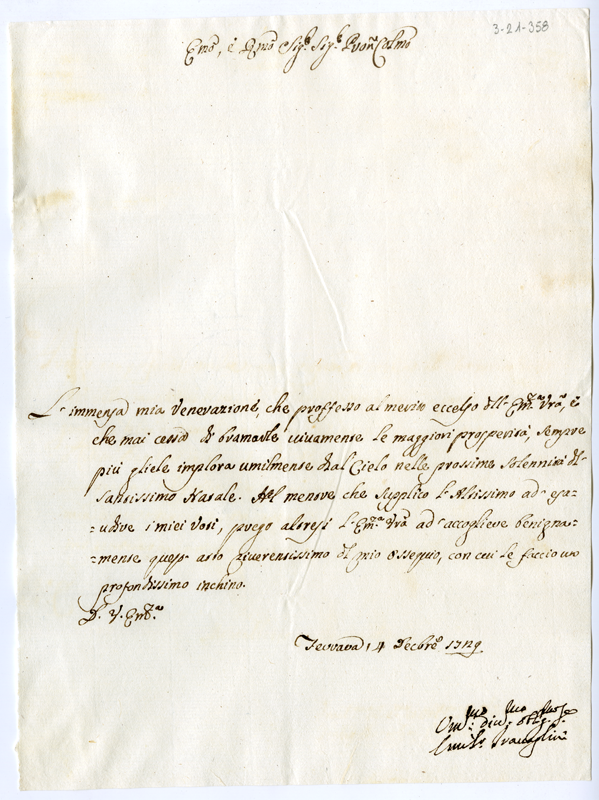 3-21-358
Emo, e Rmo Sigr. Sigr. Pron Colmo
L'immensa mia venerazione, che proffesso al merito eccelso dell'Emza Vra, e
che mai cessa di bramarle vivamente le maggiori prosperità, sempre
più gliele implora umilmente dal Cielo nelle prossime solennità del
Santissimo Natale. Nel menore che supplico l'Altissimo ad esa-
-udire i miei voti, priego altresì l'Emza Vra ad accogliere benigna-
-mente quest'atto riverentissimo del mio ossequio, con cui le faccio un
profondissimo inchino.
D. V. Emza
Ferrara, 4 Decbre 1729
Umo: divo: obbmo